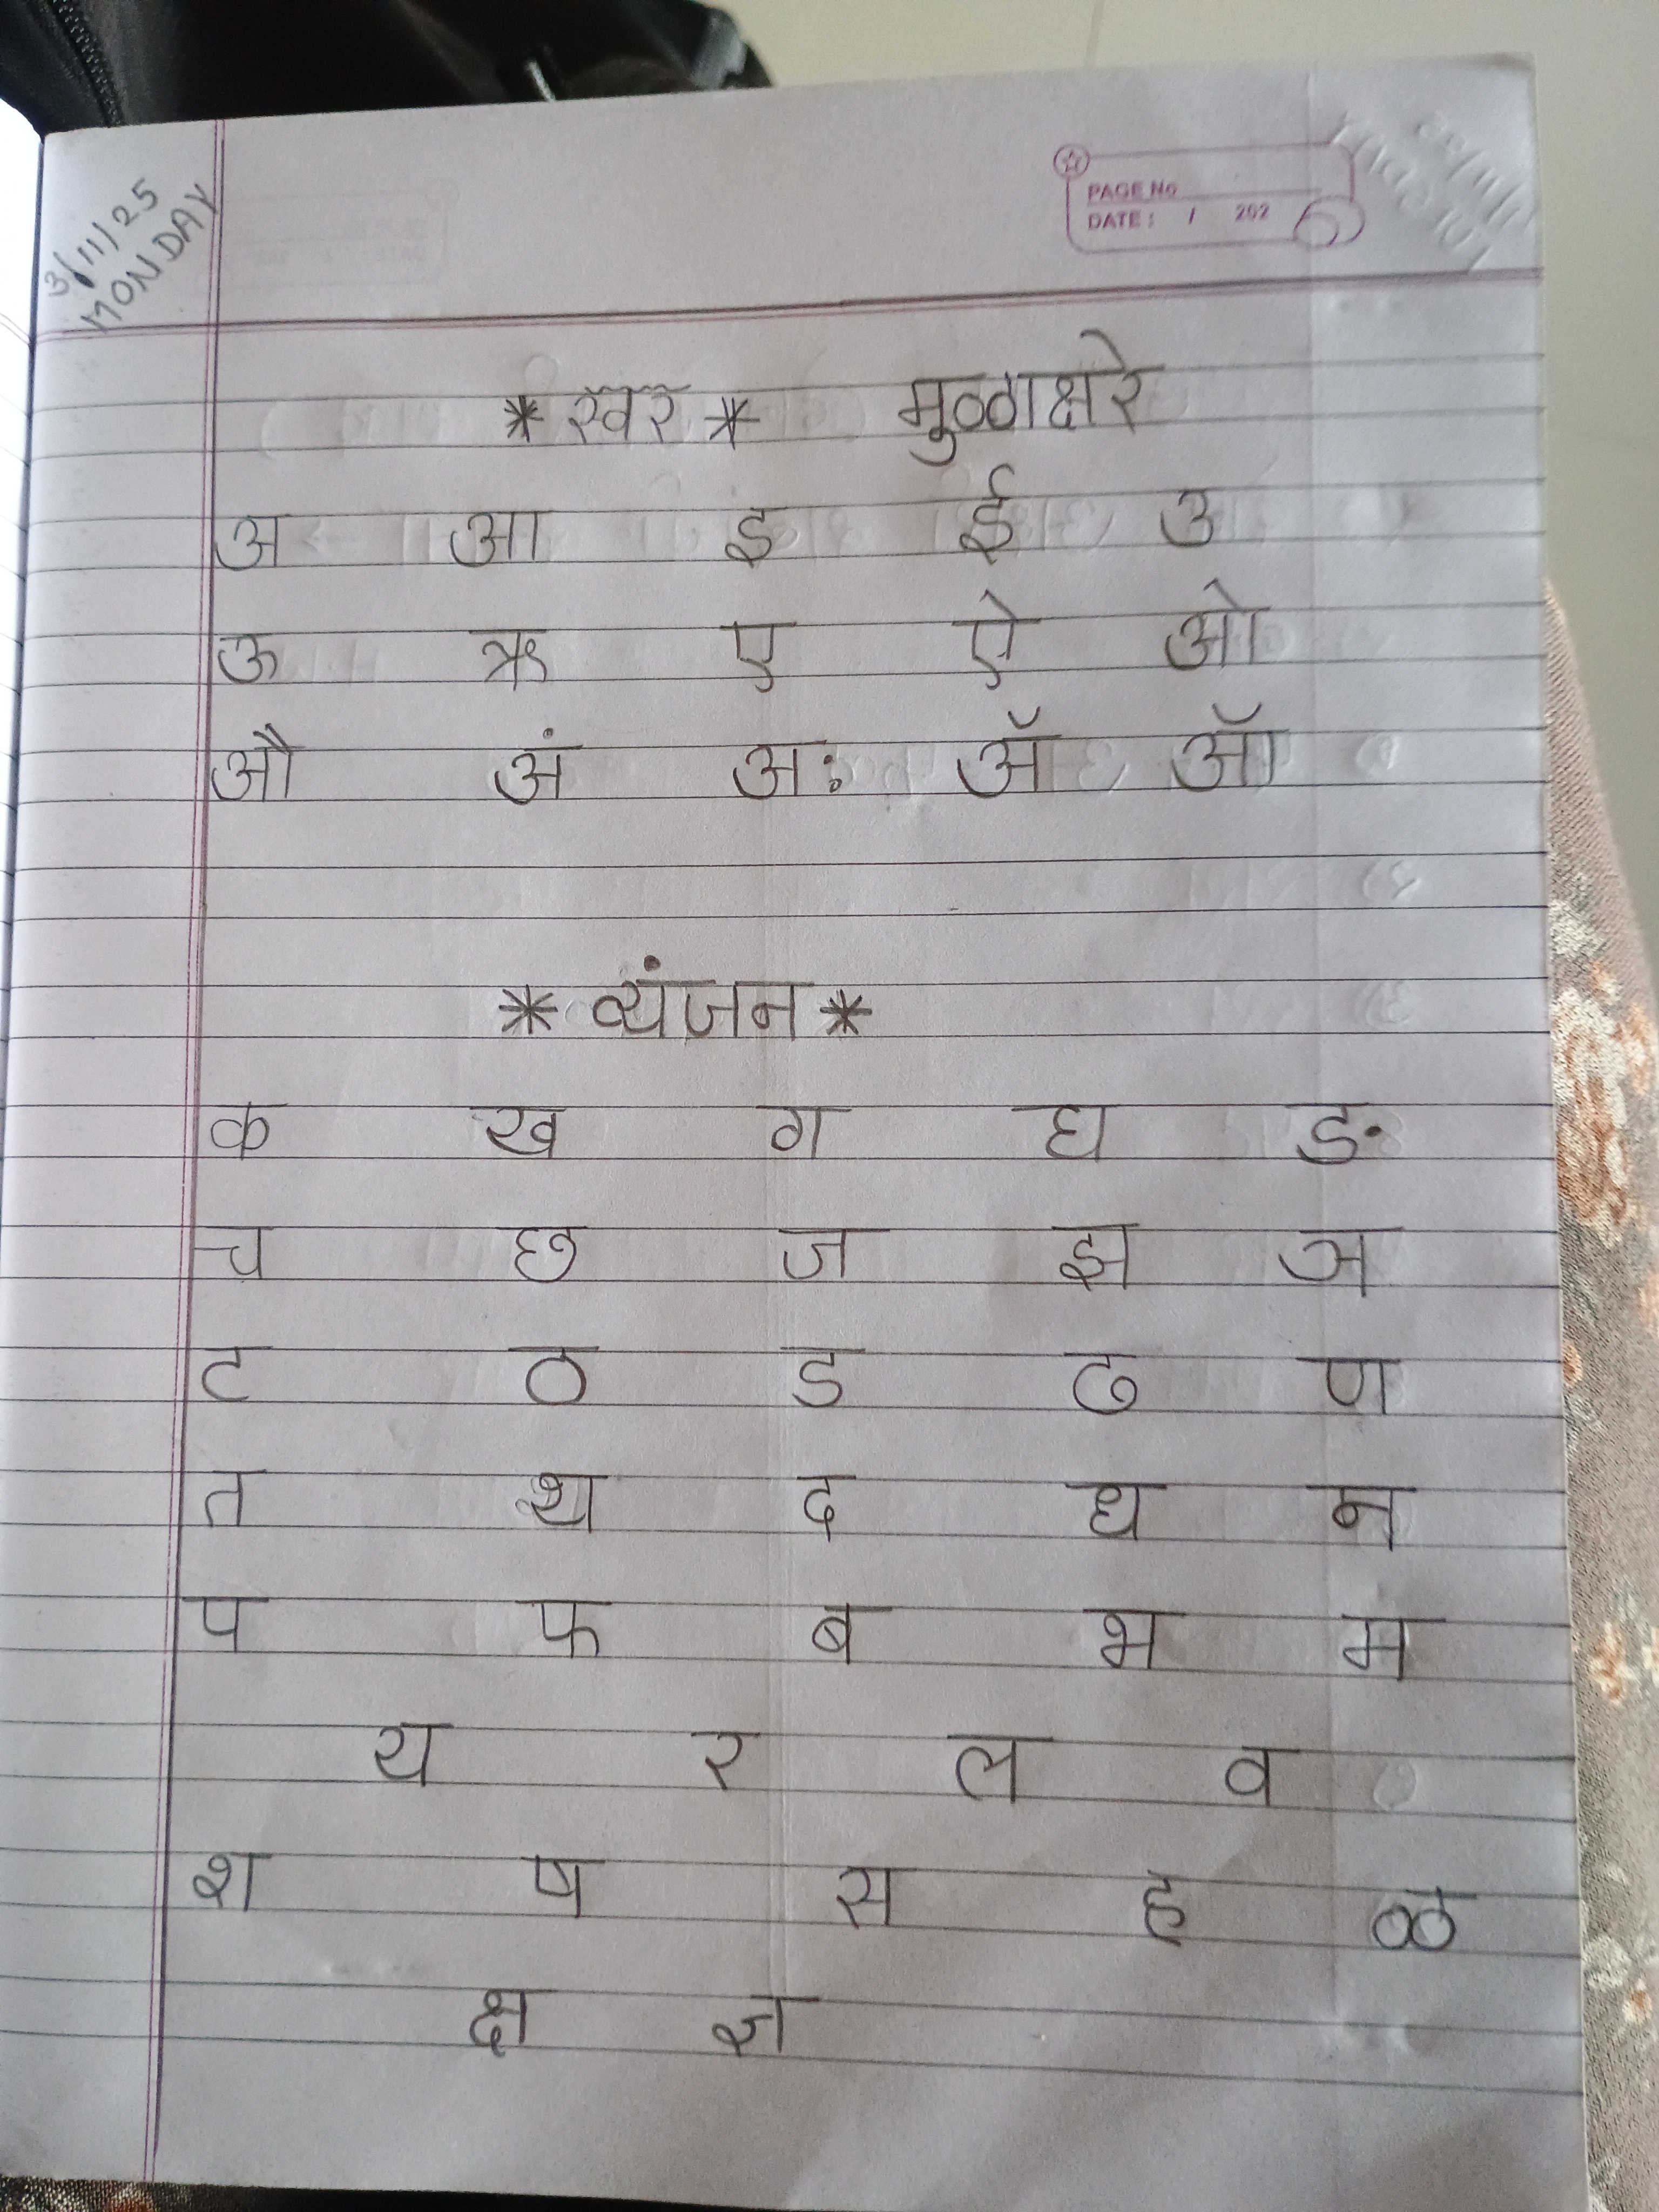 PAGE No
DATE: / 202
3/11/25
MONDAY
* स्वर * मुळाक्षरे
अ आ इ ई उ
ऊ ऋ ए ऐ ओ
औ अं अः ॲ ऑ
* व्यंजन *
क ख ग घ ङ
च छ ज झ ञ
ट ठ ड ढ ण
त थ द ध न
प फ ब भ म
य र ल व
श ष स ह ळ
क्ष ज्ञ